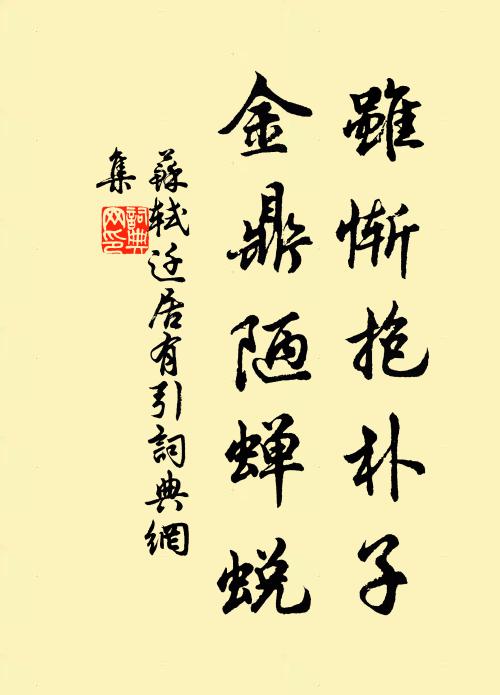 雖慚抱朴子
金鼎陋蟬蛻
蘇軾迁居有引詞典網
集
詞典
网印